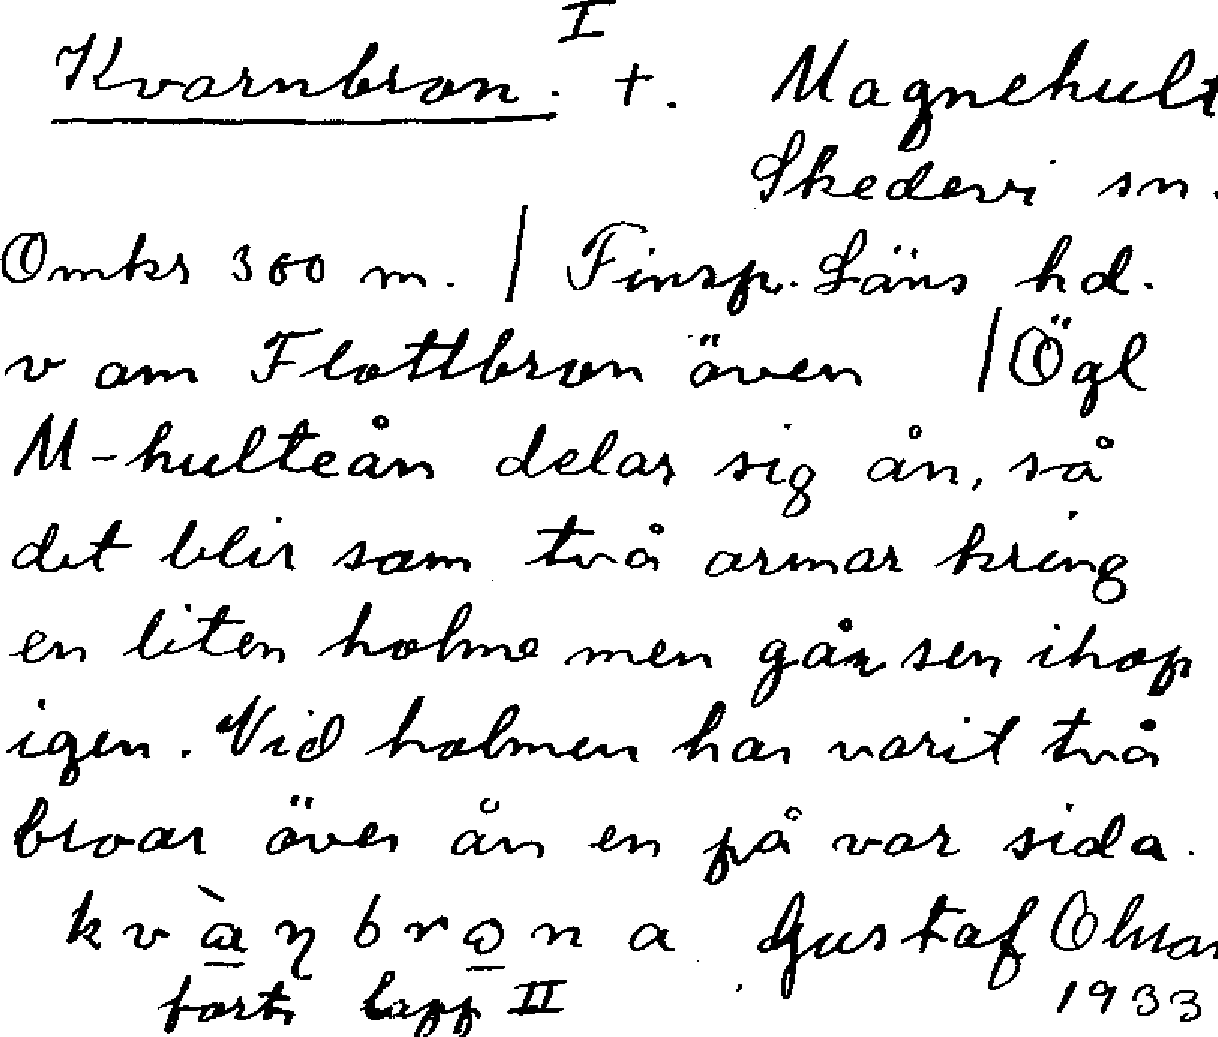 I
Kvarnbron. +. Magnehult
Skedevi sn.
Omkr 300 m. | Finsp. Läns hd.
v om Flottbron även | Ögl
M-hulteån delar sig ån, så
det blir som två armar kring
en liten holme men går sen ihop
igen. Vid holmen har varit två
broar över ån en på var sida.
Gustaf
forts lapp II 1933